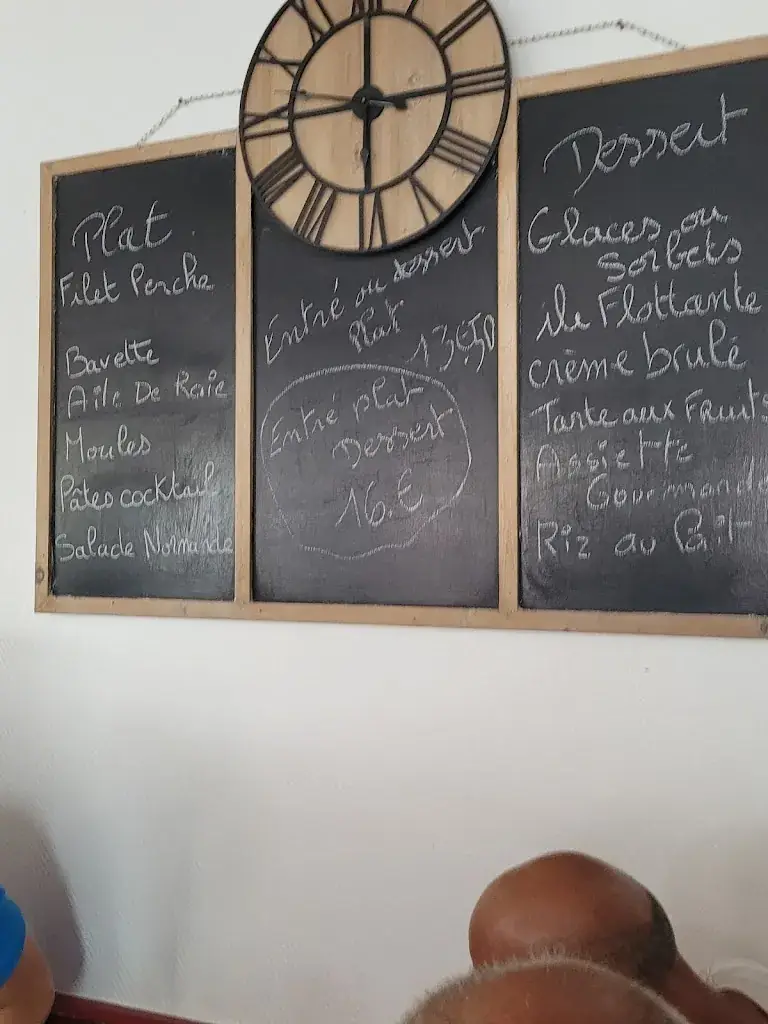 Plat
Filet Perche
Bavette
Aile De Raie
Moules
Pâtes cocktail
Salade Normande
Entré ou dessert
Plat
13€50
Entré plat
Dessert
16.€
Dessert
Glaces ou
Sorbets
ile Flottante
crème brulé
Tarte aux Fruits
Assiette
Gourmande
Riz au lait